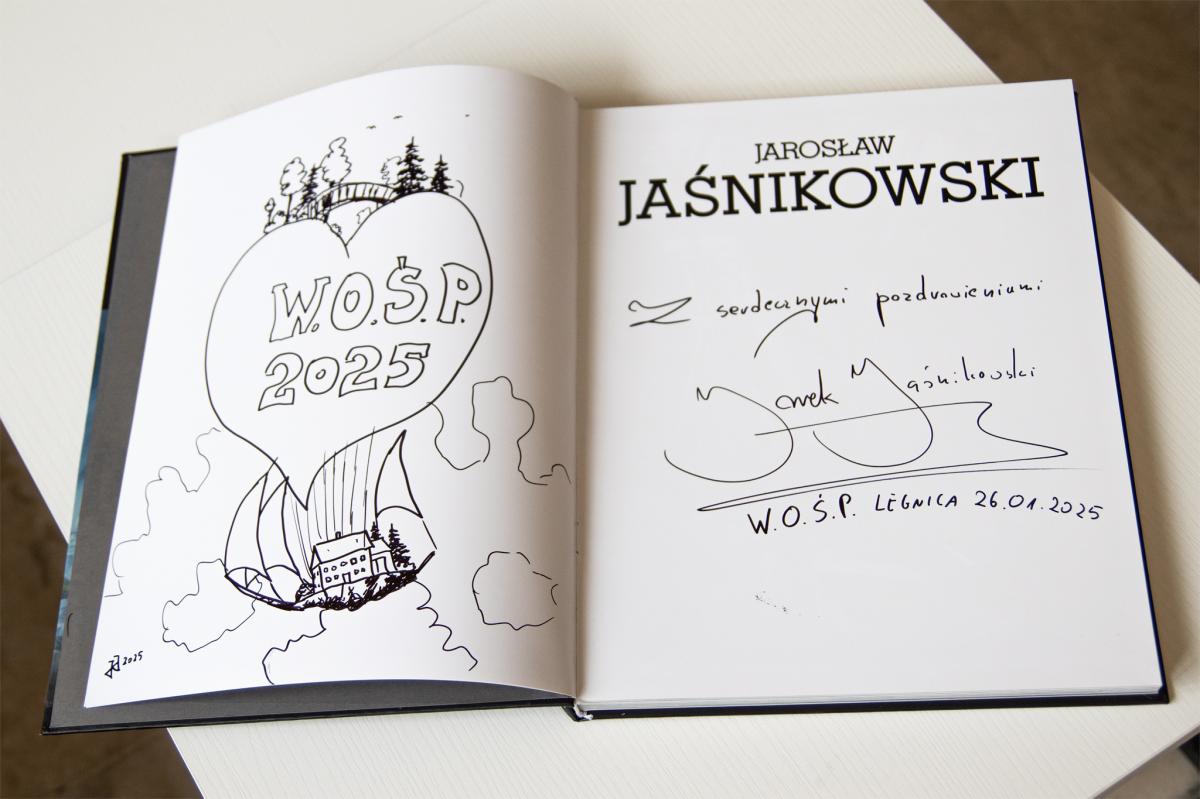 W.O.Ś.P.
2025
2025
JAROSŁAW
JAŚNIKOWSKI
Z serdecznymi pozdrowieniami
Jarek Jaśnikowski
W.O.Ś.P. LEGNICA 26.01.2025